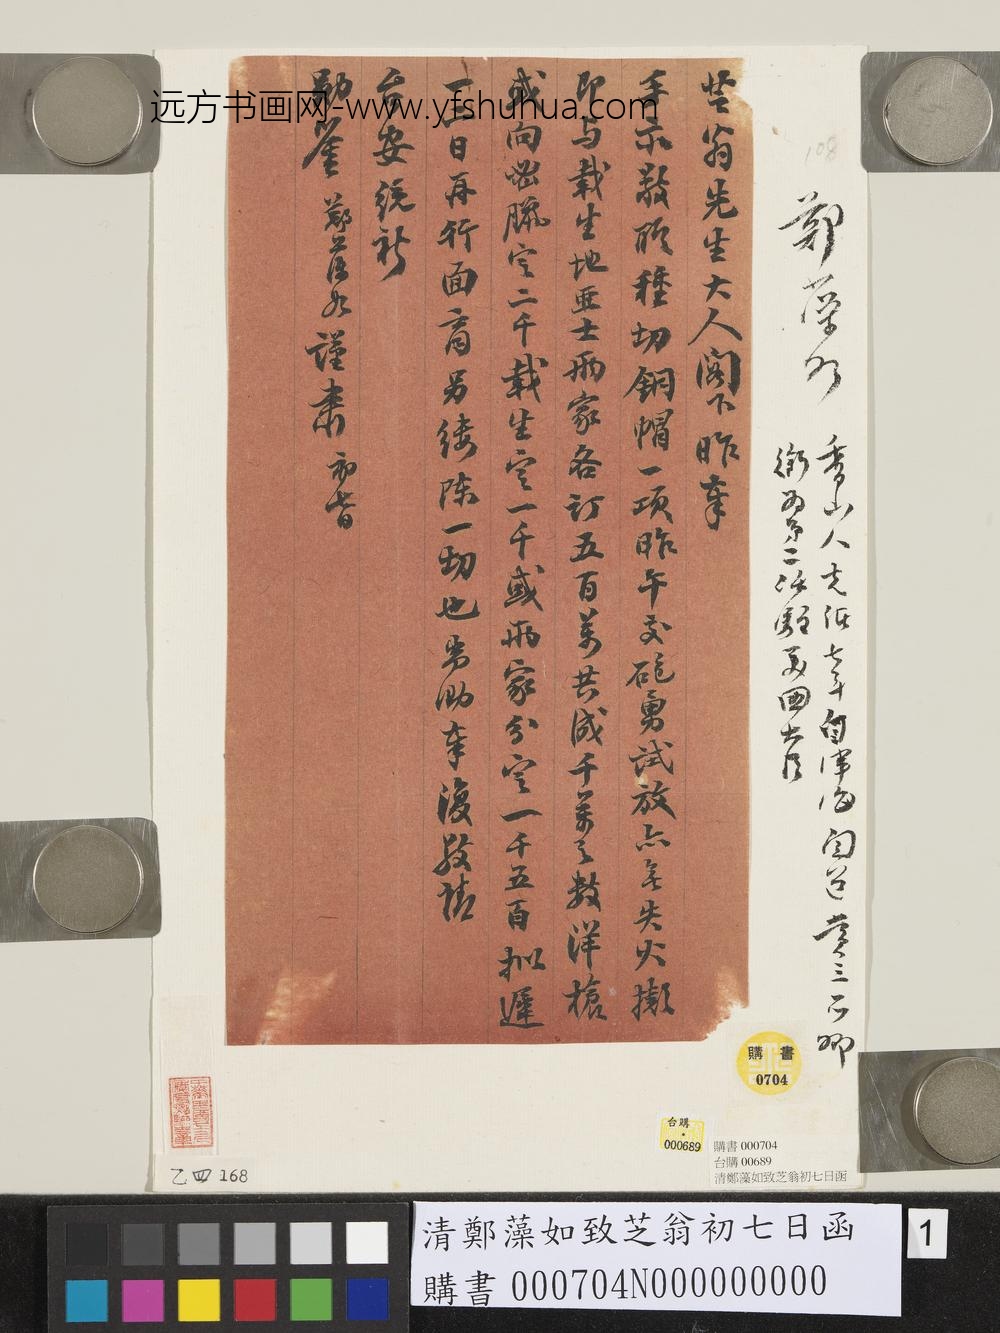 远方书画网-www.yfshuhua.com
108
鄭藻如
香山人 光緒七年自津海關道賞三品卿
銜 二 美國大臣
芝翁先生大人閣下昨奉
手示敬脄種切銅帽一項昨午交砲勇試放亦無失火擬
即与載生地亜士兩家各訂五百萬共成千萬之數洋槍
或向 臘定二千載生定一千或兩家分定一千五百拟遲
一二日再行面商另縷陳一切也 奉復敬請
台安統祈
勛鑒 鄭藻如謹肅 初七日
購書
0704
台購
000689
購書 000704
台購 00689
清鄭藻如致芝翁初七日函
乙四 168
清鄭藻如致芝翁初七日函
購書 000704N000000000
1